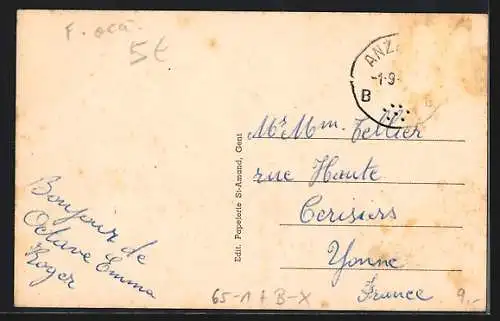 F. occ.
5t
ANZ
-1-9-
B B
Mr Mme Tellier
rue Haute
Cerisiers
Yonne
France
Edit. Papeterie St-Amand, Gent
Bonjour de
Octave Emma
Roger
65-1 + B-X
9,-